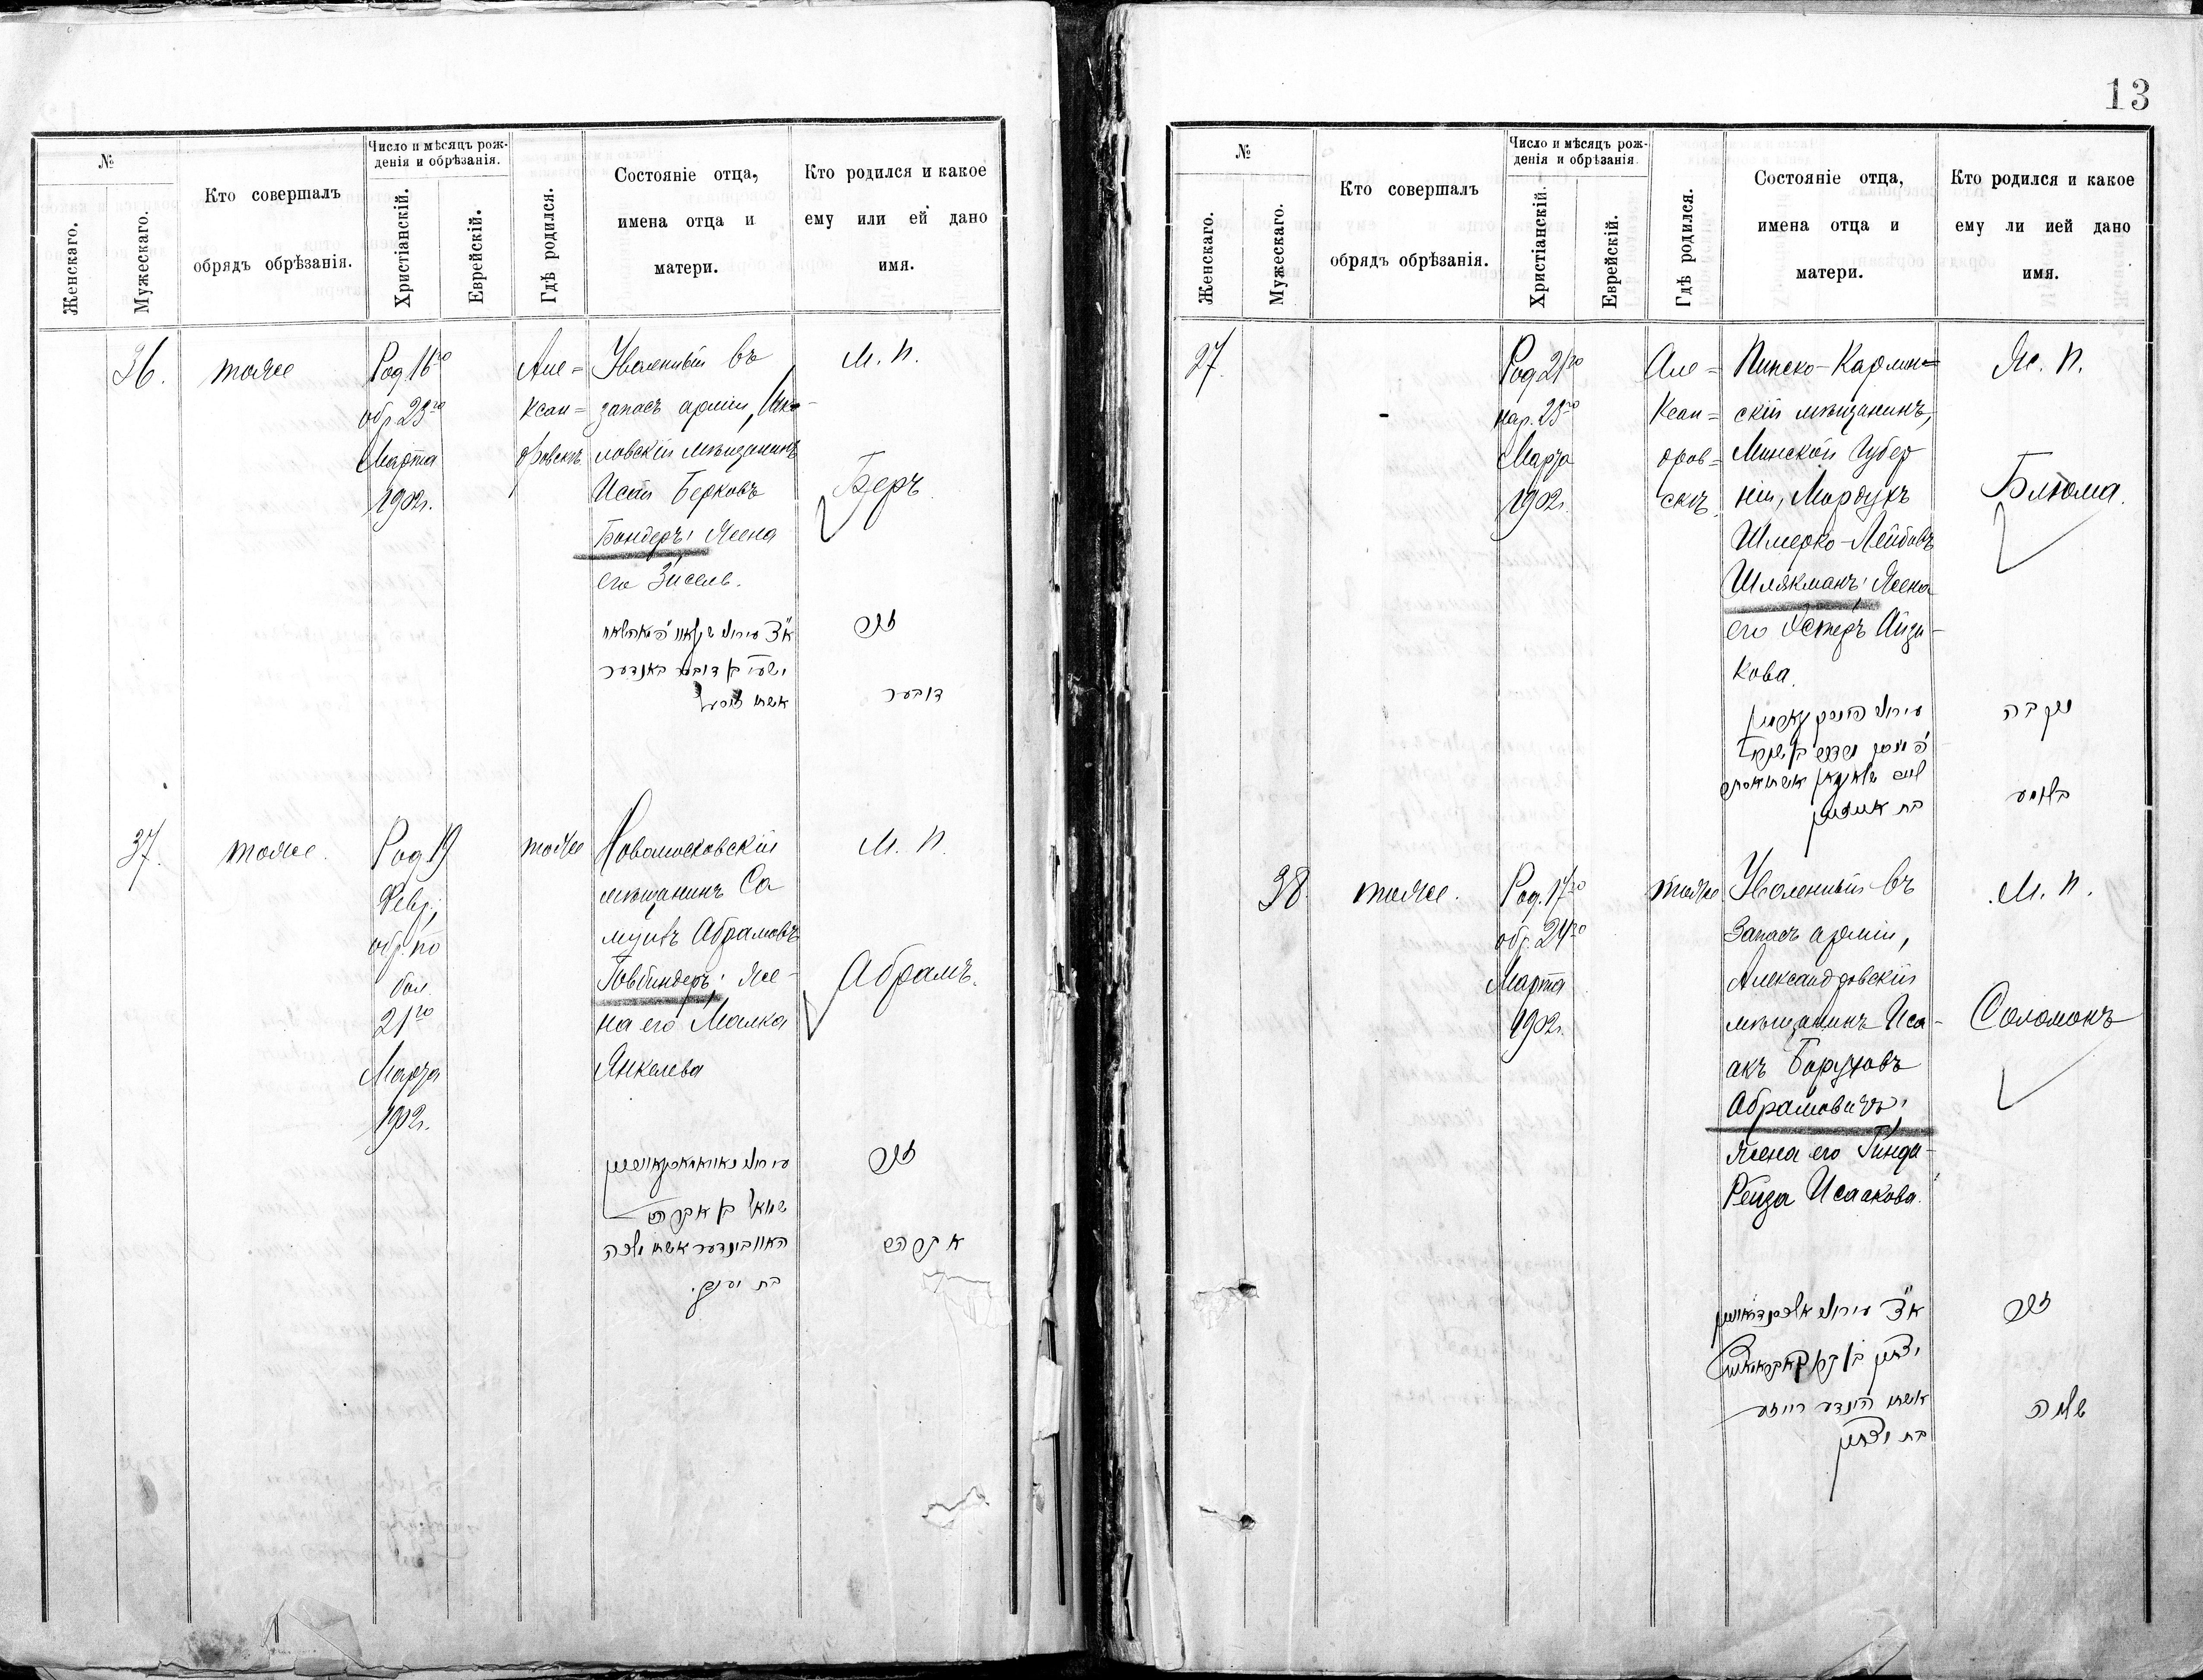 13
№
Женскаго.
Мужескаго.
Кто совершалъ
обрядъ обрѣзанія.
Число и мѣсяцъ рож-
денія и обрѣзанія.
Христіанскій.
Еврейскій.
Гдѣ родился.
Состояніе отца,
имена отца и
матери.
Кто родился и какое
ему или ей дано
имя.
36.
тоже
Род 16го
обр 23го
Марта
1902г.
Але=
ксан=
дровскъ
Уволенный въ
запасъ арміи,
мѣщанинъ
Берковъ
Бондеръ; жена
его Зисель.
М. п.
Беръ
זכר
דובער
אשתו
37.
тоже.
Род 19
Февр.;
обр. по
бол.
21го
Марта
1902г.
тоже
Новомосковскій
мѣщанинъ Са
муилъ Абрамовъ
Говбиндеръ; же-
на его Малка
Янкелева
М. п.
Абрамъ.
זכר
שמואל בן אברהם
האוובינדער אשתו מלכה
אברהם
בת יענקל.
№
Женскаго.
Мужескаго.
Кто совершалъ
обрядъ обрѣзанія.
Число и мѣсяцъ рож-
денія и обрѣзанія.
Христіанскій.
Еврейскій.
Гдѣ родился.
Состояніе отца,
имена отца и
матери.
Кто родился и какое
ему ли ией дано
имя.
27.
-
Род 21го
нар. 23го
Марта
1902г.
Але=
ксан=
дров=
скъ.
Пинско-Карлин=
скій мѣщанинъ,
Минской Губер
ніи, Мордухъ
Шмерко-Лейбовъ
Шлякманъ; жена
его Эстеръ Айзи-
кова.
Ж. п.
Блюма.
נקבה
בלומע
38.
тоже.
Род. 17го
обр. 24го
Марта
1902г.
тоже
Уволенный въ
запасъ арміи,
Александровскій
мѣщанинъ Иса-
акъ Боруховъ
Абрамовичъ;
жена его Гинда-
Рейза Исаакова.
М. п.
Соломонъ
זכר
אשתו הינדע רייזע
שלמה
בת יצחק